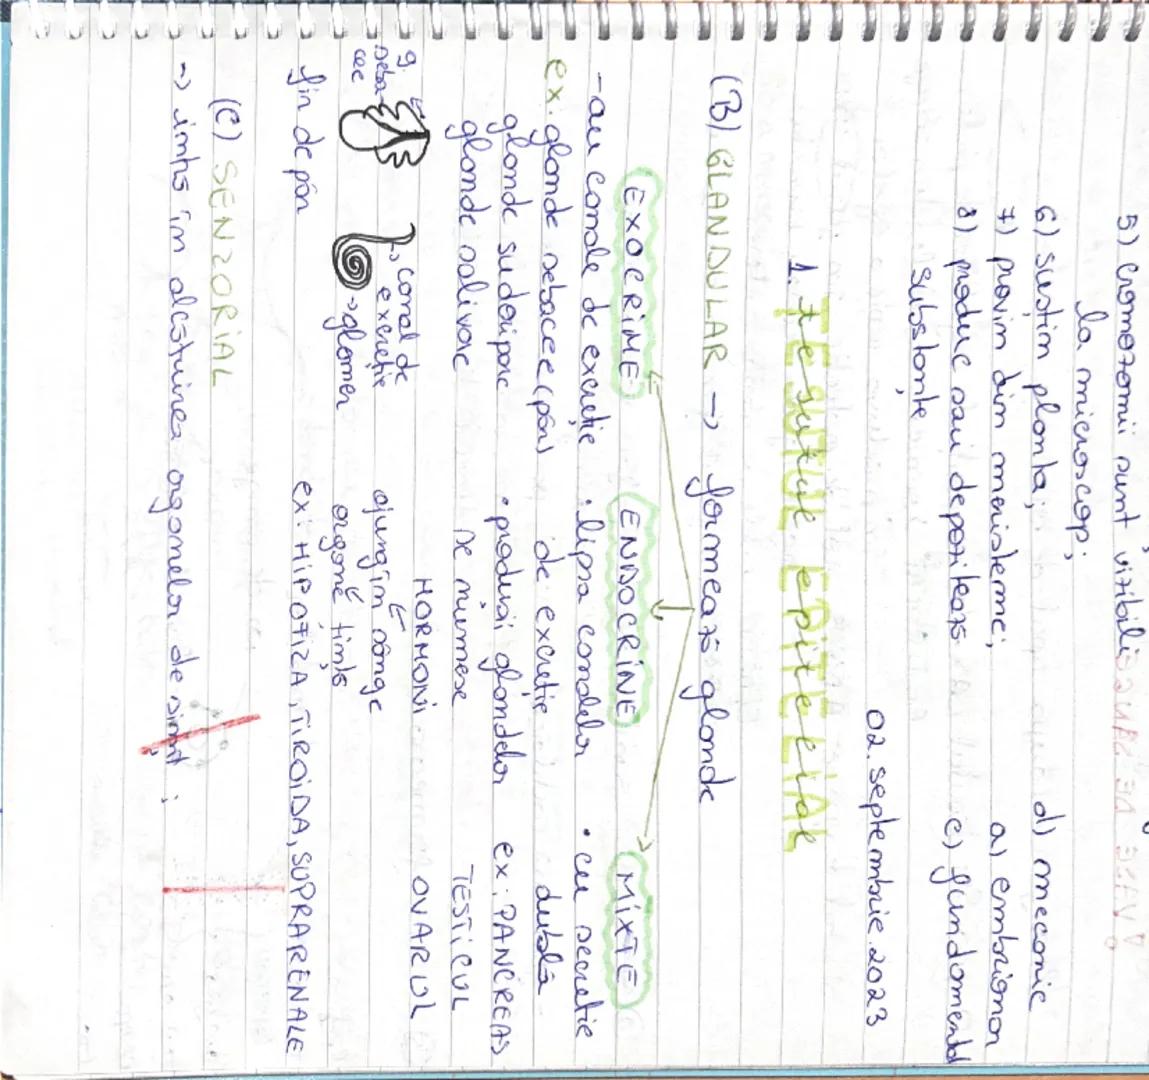 5) cromozomii sunt vizibili
la microscop;
6) susțin planta; d) mecanic
7) provin din meristeme; a) embrionar
8) produc sau depozitează c) fundamental
substanțe
02. septembrie. 2023
1. Țesutul epitelial
(B) GLANDULAR → formează glande
EXOCRINE ENDOCRINE MIXTE
- au canale de excreție • lipsa canalelor • cu secreție
ex. glande sebacee (păr) de excreție dublă
glande sudoripare • produșii glandelor ex: PANCREAS
glande salivare se numesc TESTICUL
HORMONI OVARUL
g. seba-cee → canal de excreție ajung în sânge
→ glomer organe țintă
fir de păr ex: HIPOFIZA, TIROIDA, SUPRARENALE
(C) SENZORIAL
→ intră în alcătuirea organelor de simț;